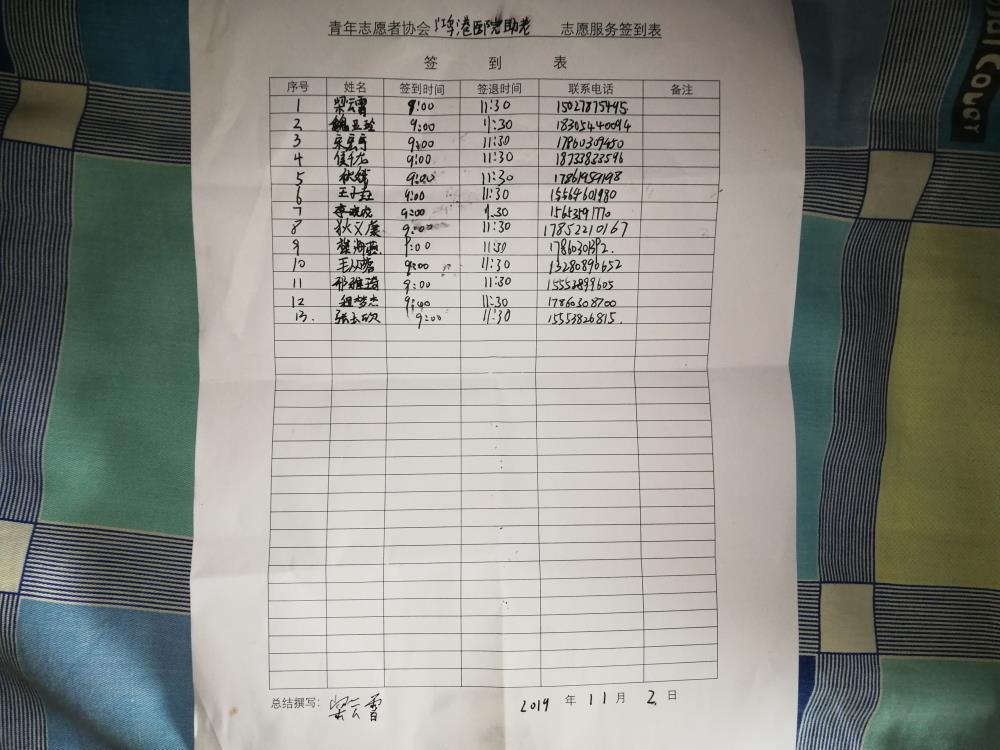 青年志愿者协会 港医院助老 志愿服务签到表
签 到 表
序号 姓名 签到时间 签退时间 联系电话 备注
1 梁云雪 9:00 11:30 15027875495
2 魏亚玲 9:00 11:30 18305440094
3 9:00 11:30 17860309450
4 9:00 11:30 18733833596
5 9:00 11:30 17861959198
6 9:00 11:30 15564601980
7 李晓 9:00 11:30 15653591770
8 狄义康 9:00 11:30 17852210167
9 海燕 9:00 11:30
10 9:00 11:30 13280890652
11 邢雅琦 9:00 11:30 15552899605
12 程梦杰 9:00 11:30 17860308700
13. 张玉欣 9:00 11:30 15553826815.
总结撰写: 梁云雪 2019 年 11 月 2 日
Color